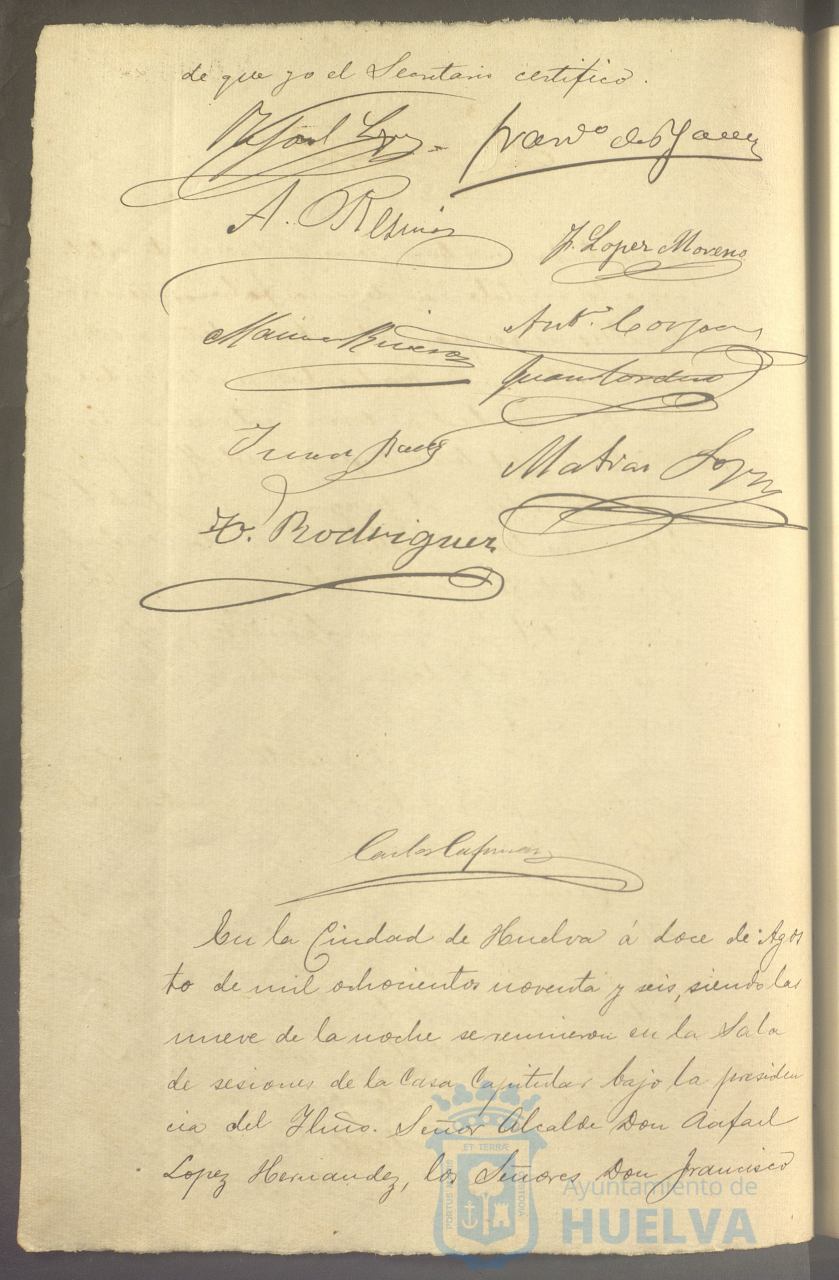 de que yo el Secretario certifico.
Rafael Lopez
A. Resinas
J. Lopez Moreno
Antº.
Juan Cordero
Matias Lopez
Rodriguez
Carlos
En la Ciudad de Huelva á doce de Agos
to de mil ochocientos noventa y seis, siendo las
nueve de la noche se reunieron en la Sala
de sesiones de la Casa Capitular bajo la presiden
cia del Ilmo. Señor Alcalde Don Rafael
Lopez Hernandez, los Señores Don Francisco
PORTUS
ET TERRÆ
CUSTODIA
Ayuntamiento de
HUELVA